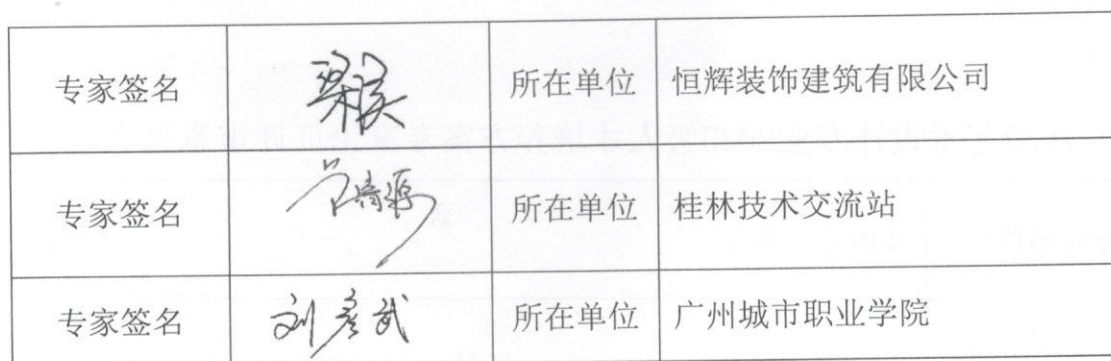 专家签名 所在单位 恒辉装饰建筑有限公司
专家签名 所在单位 桂林技术交流站
专家签名 刘彦武 所在单位 广州城市职业学院